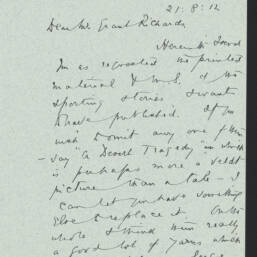 21 : 8 : 12
Dear Mr. Grant Richards
Herewith I send
you as requested the printed
material & M.S. of the
sporting stories I want
to have published. If you
wish to omit any one of them
– say "A Desert Tragedy" which
is perhaps more a veldt
picture than a tale – I
can let you have something
else to replace it. On the
whole I think them really
a good lot of yarns which